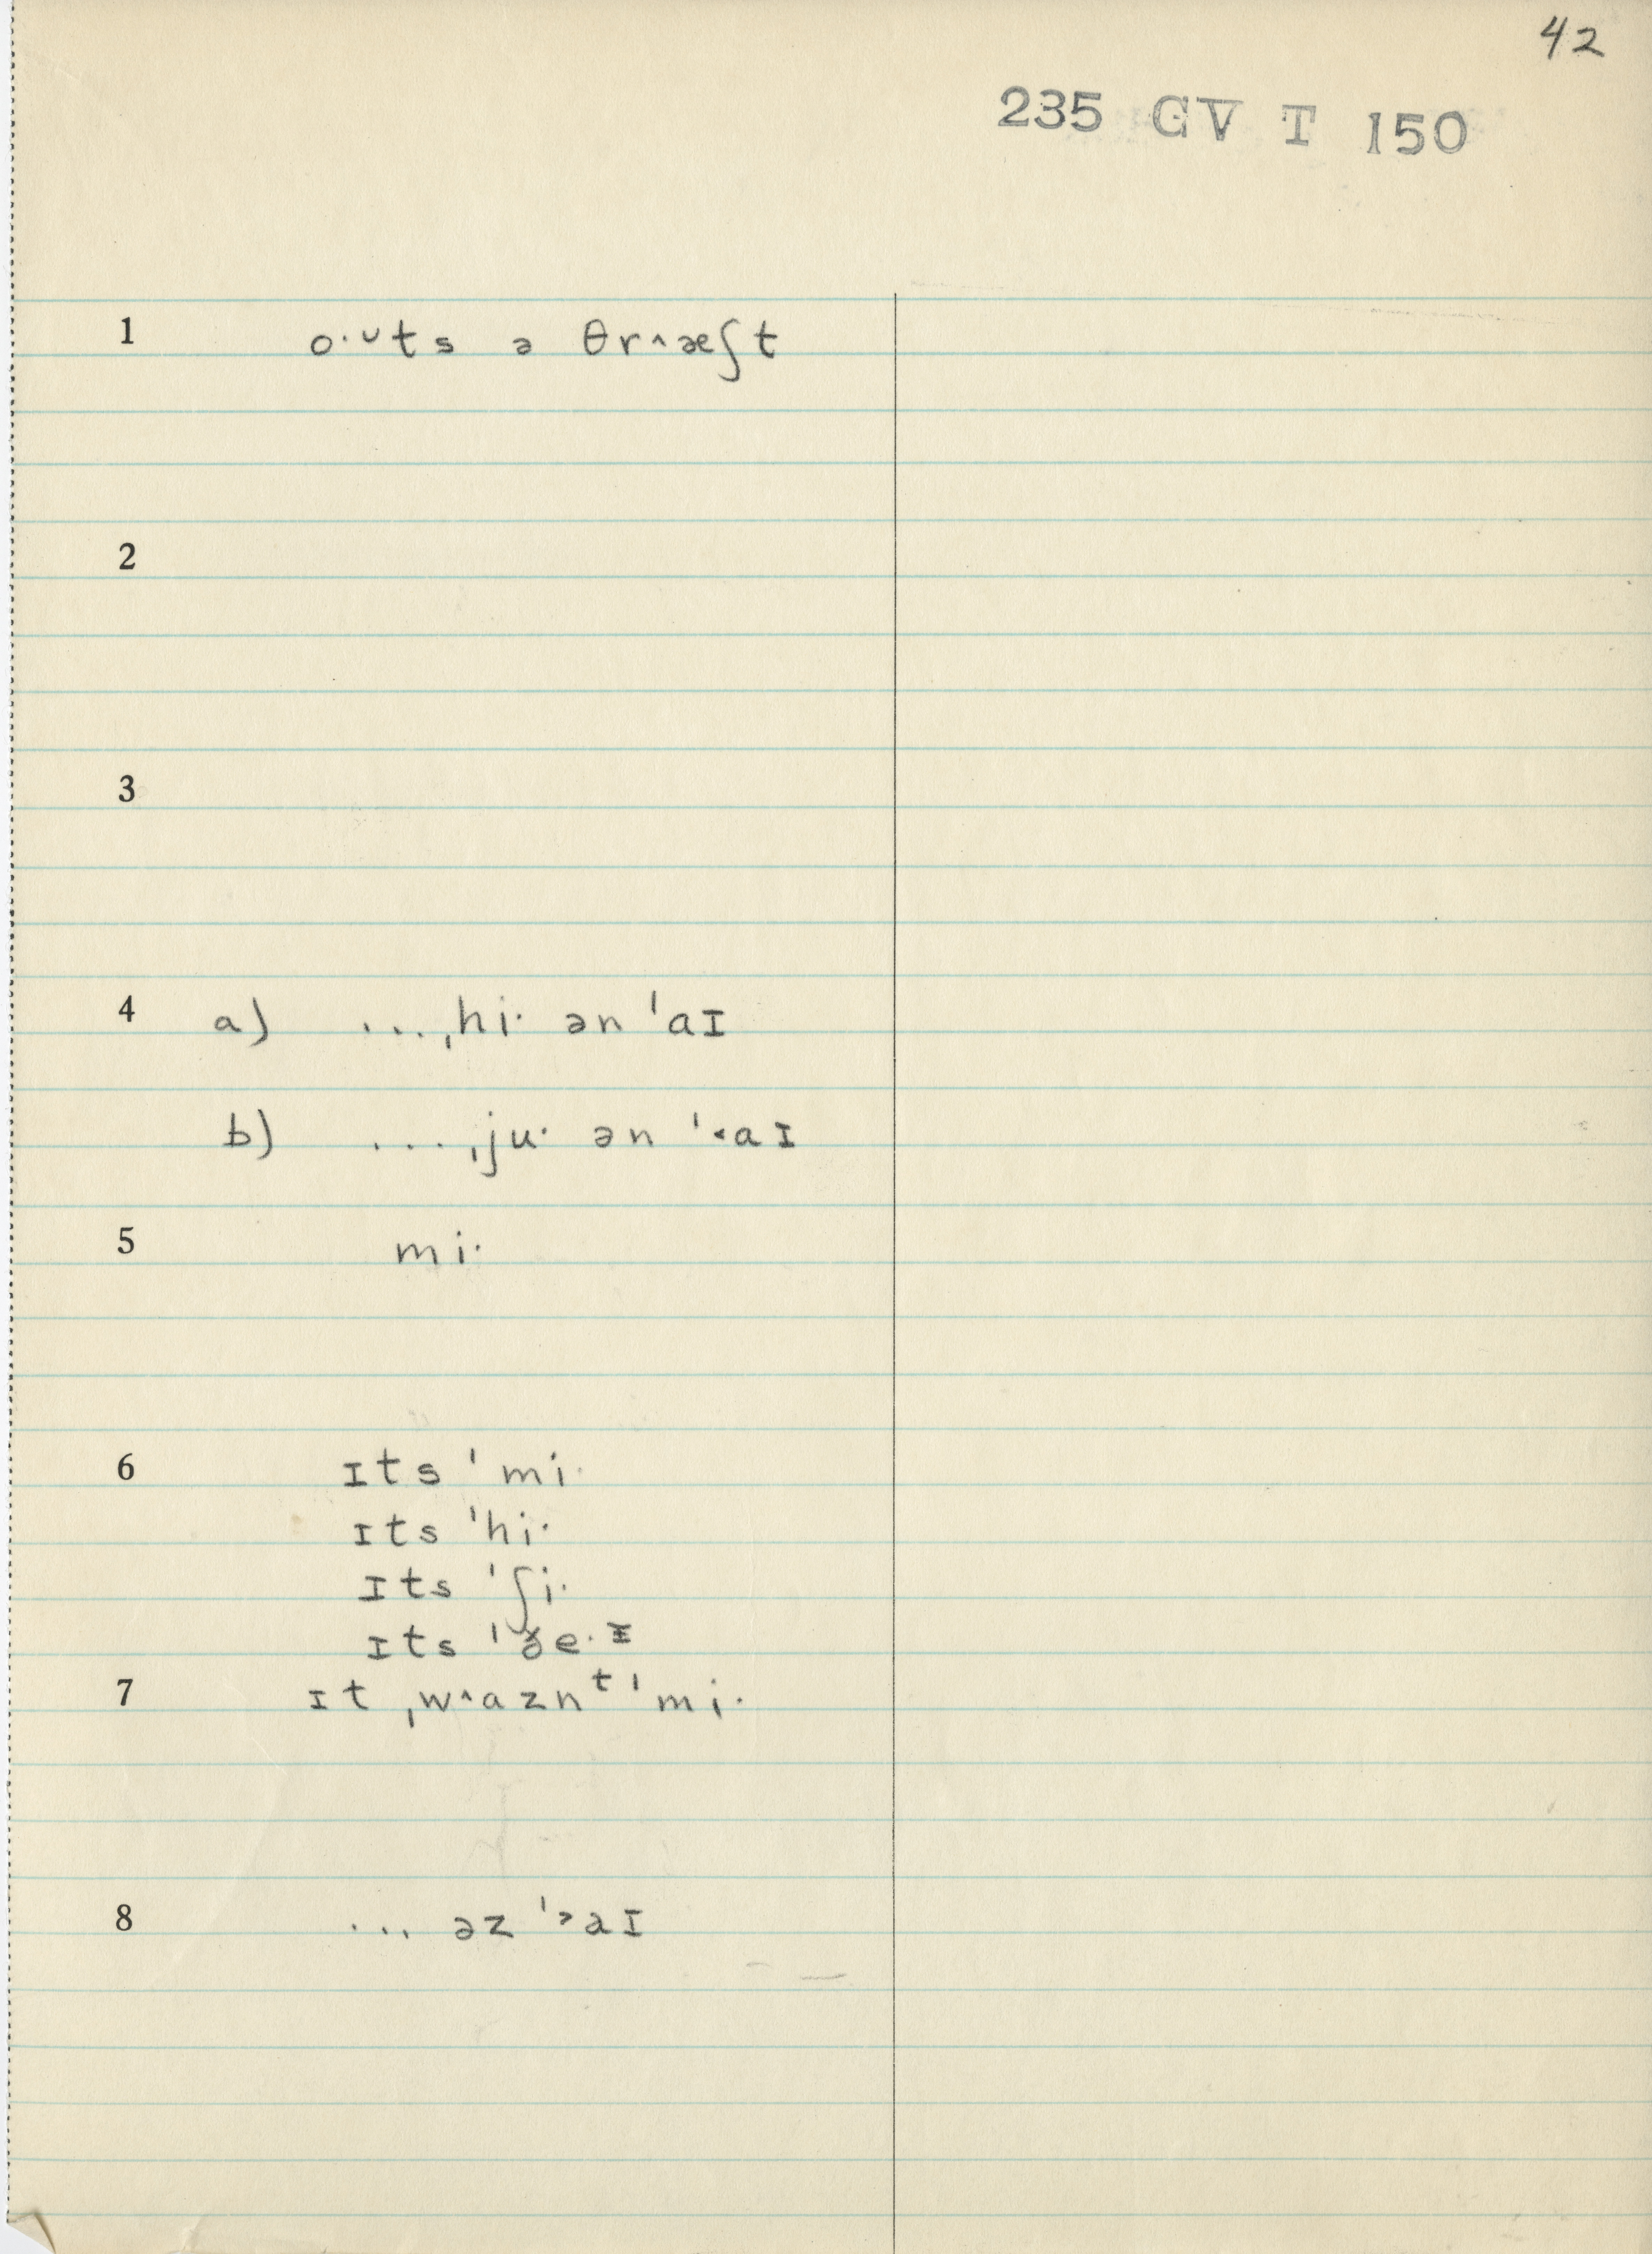 42
235 GV T 150
1 o·ᴗts ə θr^æʃt
2
3
4 a) ...ˌhi· ən ˈaɪ
b) ...ˌju· ən ˈ˂aɪ
5 mi·
6 ɪts ˈmi·
ɪts ˈhi·
ɪts ˈʃi·
ɪts ˈðe·ɪ
7 ɪt ˌw^aznᵗ ˈmi·
8 ... əz ˈ˃aɪ